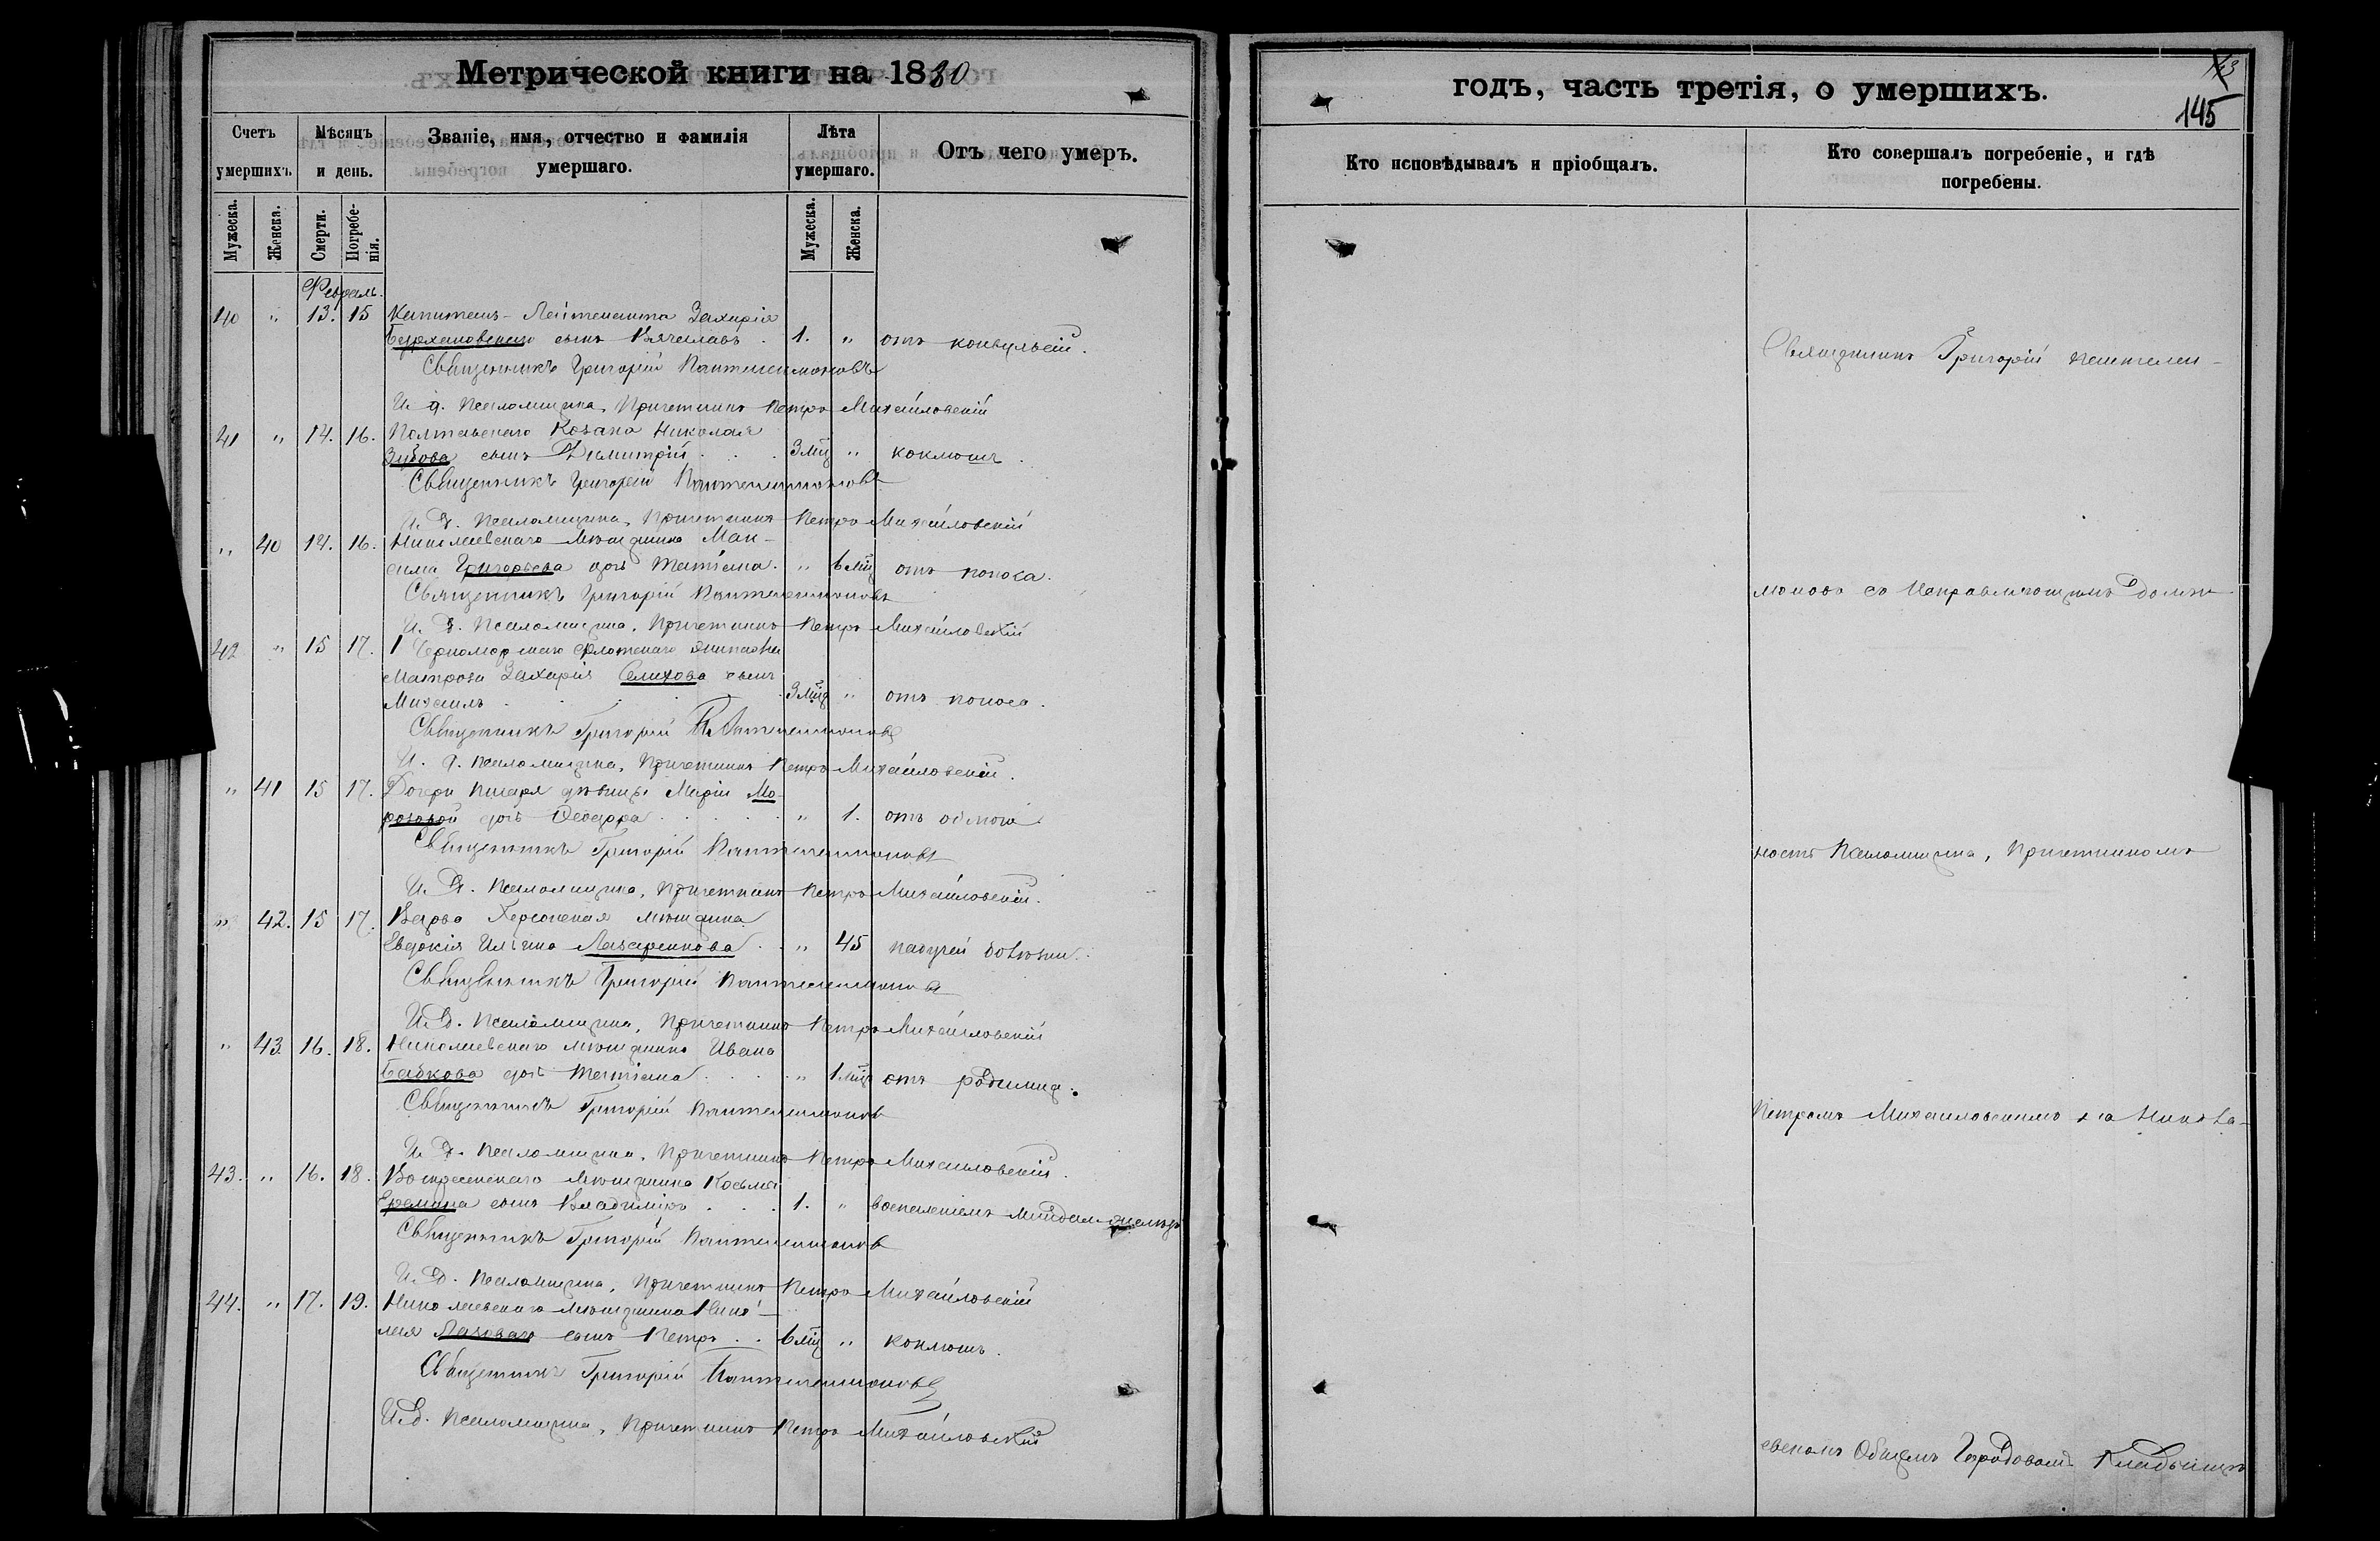 Метрической книги на 1880
Счетъ умершихъ.
Мѣсяцъ и день.
Званіе, имя, отчество и фамилія умершаго.
Лѣта умершаго.
Отъ чего умеръ.
Мужеска.
Женска.
Смерти.
Погребенія.
Мужеска.
Женска.
Февраль.
40 " 13. 15 Капитанъ-Лейтенанта Захарія
сынъ Вячеславъ . 1. " отъ конвульсій.
Священникъ Григорій Пантелеимоновъ
И. д. Псаломщика, Причетникъ Петръ Михайловскій
41 " 14. 16. Полтавскаго Козака Николая
Зубова сынъ Димитрій . . . 3 мѣц " коклюшъ.
Священникъ Григорій Пантелеимоновъ
И. д. Псаломщика, Причетникъ Петръ Михайловскій
" 40 14. 16. Николаевскаго мѣщанина Мак-
сима Григорьева дочь Татіана. " 6 мѣц отъ поноса.
Священникъ Григорій Пантелеимоновъ
И. д. Псаломщика, Причетникъ Петръ Михайловскій
42 " 15 17. 1 Черноморскаго флотскаго экипажа
Матроса Захарія Селихова сынъ
Михаилъ . . . 3 мѣц " отъ поноса.
Священникъ Григорій Пантелеимоновъ
И. д. Псаломщика, Причетникъ Петръ Михайловскій.
" 41 15 17. Дочери писаря дѣвицы Маріи Мо-
розовой дочь Ѳеодора . . . . " 1. отъ
Священникъ Григорій Пантелеимоновъ
И. д. Псаломщика, Причетникъ Петръ Михайловскій.
" 42. 15 17. Вдова Херсонская мѣщанка
Евдокія Лазаренкова . . " 45 падучей болѣзни.
Священникъ Григорій Пантелеимоновъ
И. д. Псаломщика, Причетникъ Петръ Михайловскій
" 43 16. 18. Николаевскаго мѣщанина Ивана
Бабкова дочь Татіана . . . " 1 мѣц отъ родимца.
Священникъ Григорій Пантелеимоновъ
И. д. Псаломщика, Причетникъ Петръ Михайловскій.
43. " 16. 18. Воскресенскаго мѣщанина Косьмы
Еремина сынъ Владиміръ . . . 1. " воспаленіемъ
Священникъ Григорій Пантелеимоновъ
И. д. Псаломщика, Причетникъ Петръ Михайловскій
44. " 17. 19. Николаевскаго мѣщанина Нико-
лая Лазоваго сынъ Петръ . . 6 мѣц " коклюшъ.
Священникъ Григорій Пантелеимоновъ
И. д. Псаломщика, Причетникъ Петръ Михайловскій
годъ, часть третія, о умершихъ.
143
145
Кто исповѣдывалъ и пріобщалъ.
Кто совершалъ погребеніе, и гдѣ погребены.
Священникъ Григорій Пантелеи-
моновъ съ Исправляющимъ долж-
ность Псаломщика, Причетникомъ
Петромъ Михайловскимъ на Никола-
евскомъ Общемъ Городовомъ Кладбищѣ